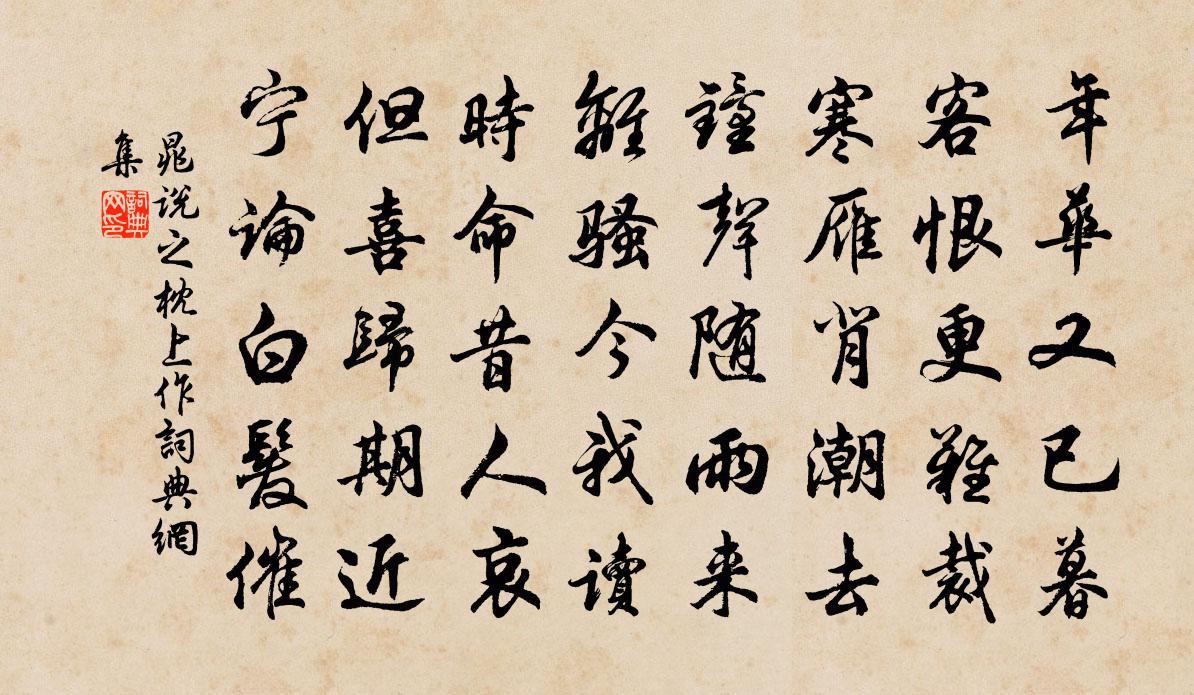 年華又已暮
客恨更難裁
寒雁肖潮去
鐘聲随雨来
離騷今我讀
時命昔人哀
但喜歸期近
宁論白髮催
晁説之枕上作詞典網
集
詞典
网印